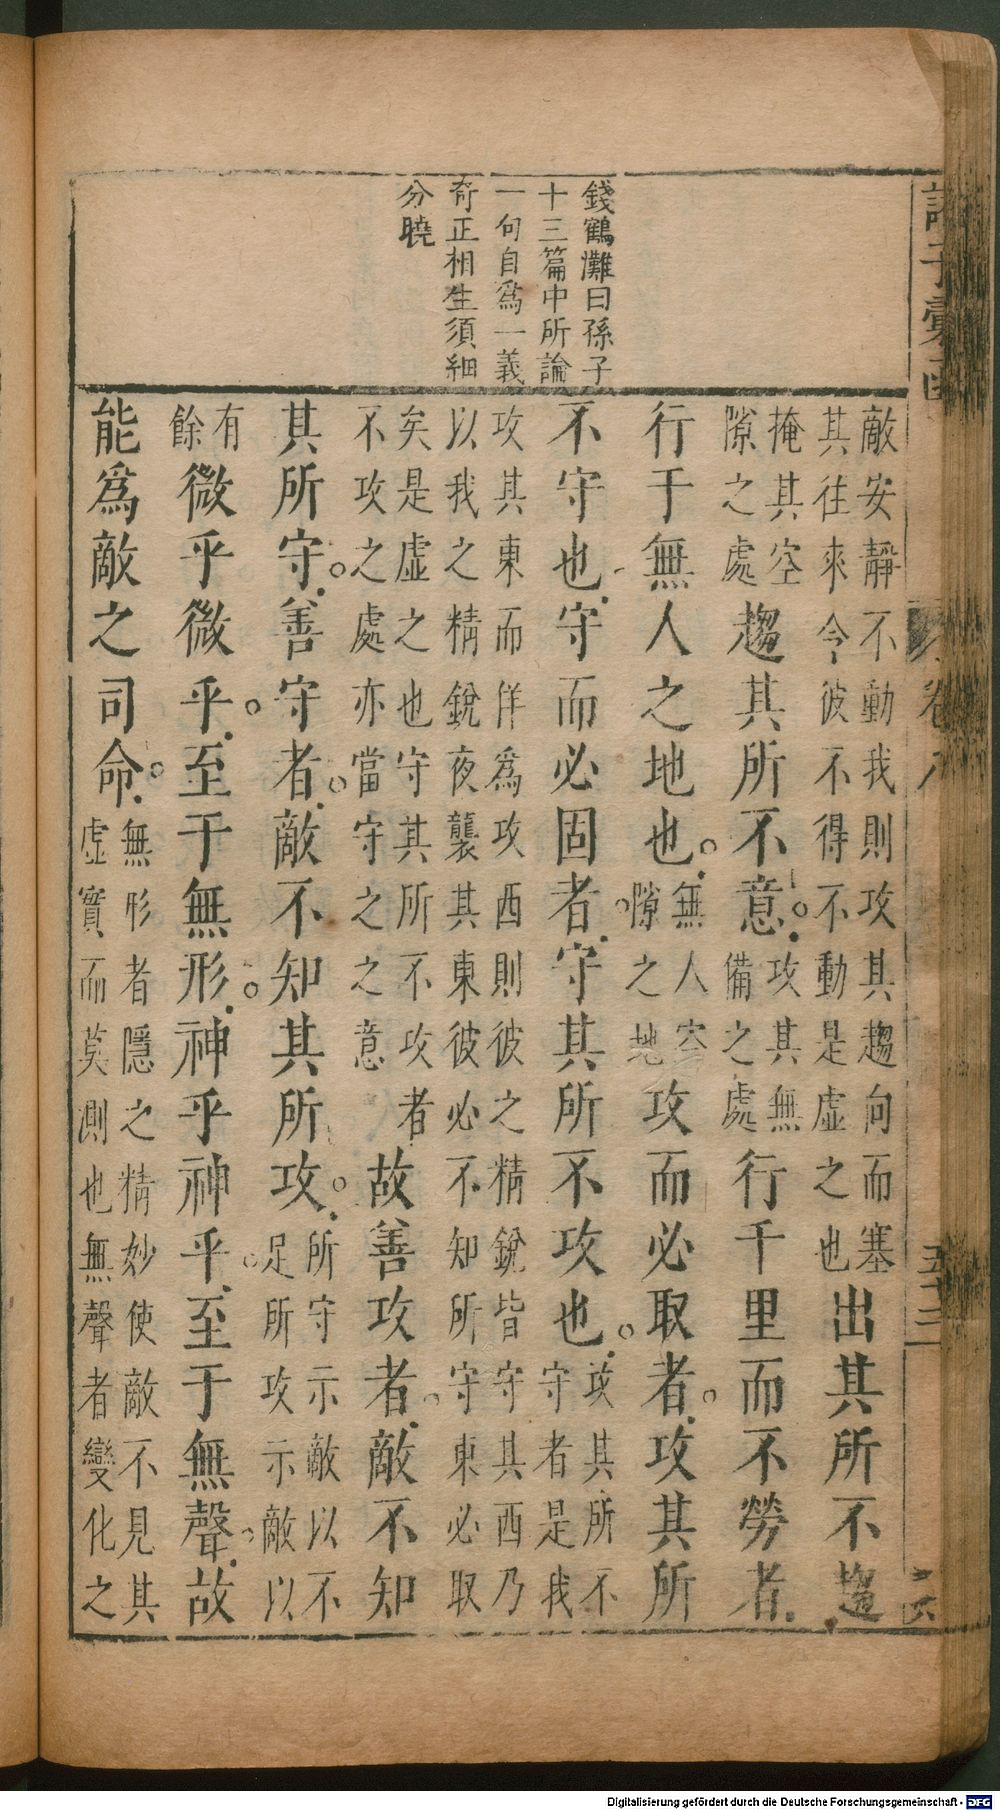 錢鶴灘曰孫子
十三篇中所論
一句自爲一義
竒正相生須細
分曉
敵安靜不動我則攻其趨向而塞
其往來令彼不得不動是虛之也
出其所不趨
掩其空
隙之處
趨其所不意
攻其無
備之處
行千里而不勞者
行于無人之地也
無人空
隙之地
攻而必取者攻其所
不守也守而必固者守其所不攻也
攻其所不
守者是我
攻其東而佯爲攻西則彼之精銳皆守其西乃
以我之精銳夜襲其東彼必不知所守東必取
矣是虛之也守其所不攻者
不攻之處亦當守之之意
故善攻者敵不知
其所守善守者敵不知其所攻
所守示敵以不
足所攻示敵以
有
餘
微乎微乎至于無形神乎神乎至于無聲故
能爲敵之司命
無形者隱之精妙使敵不見其
虛實而莫測也無聲者變化之
卷八
五十三
Digitalisierung gefördert durch die Deutsche Forschungsgemeinschaft - DFG